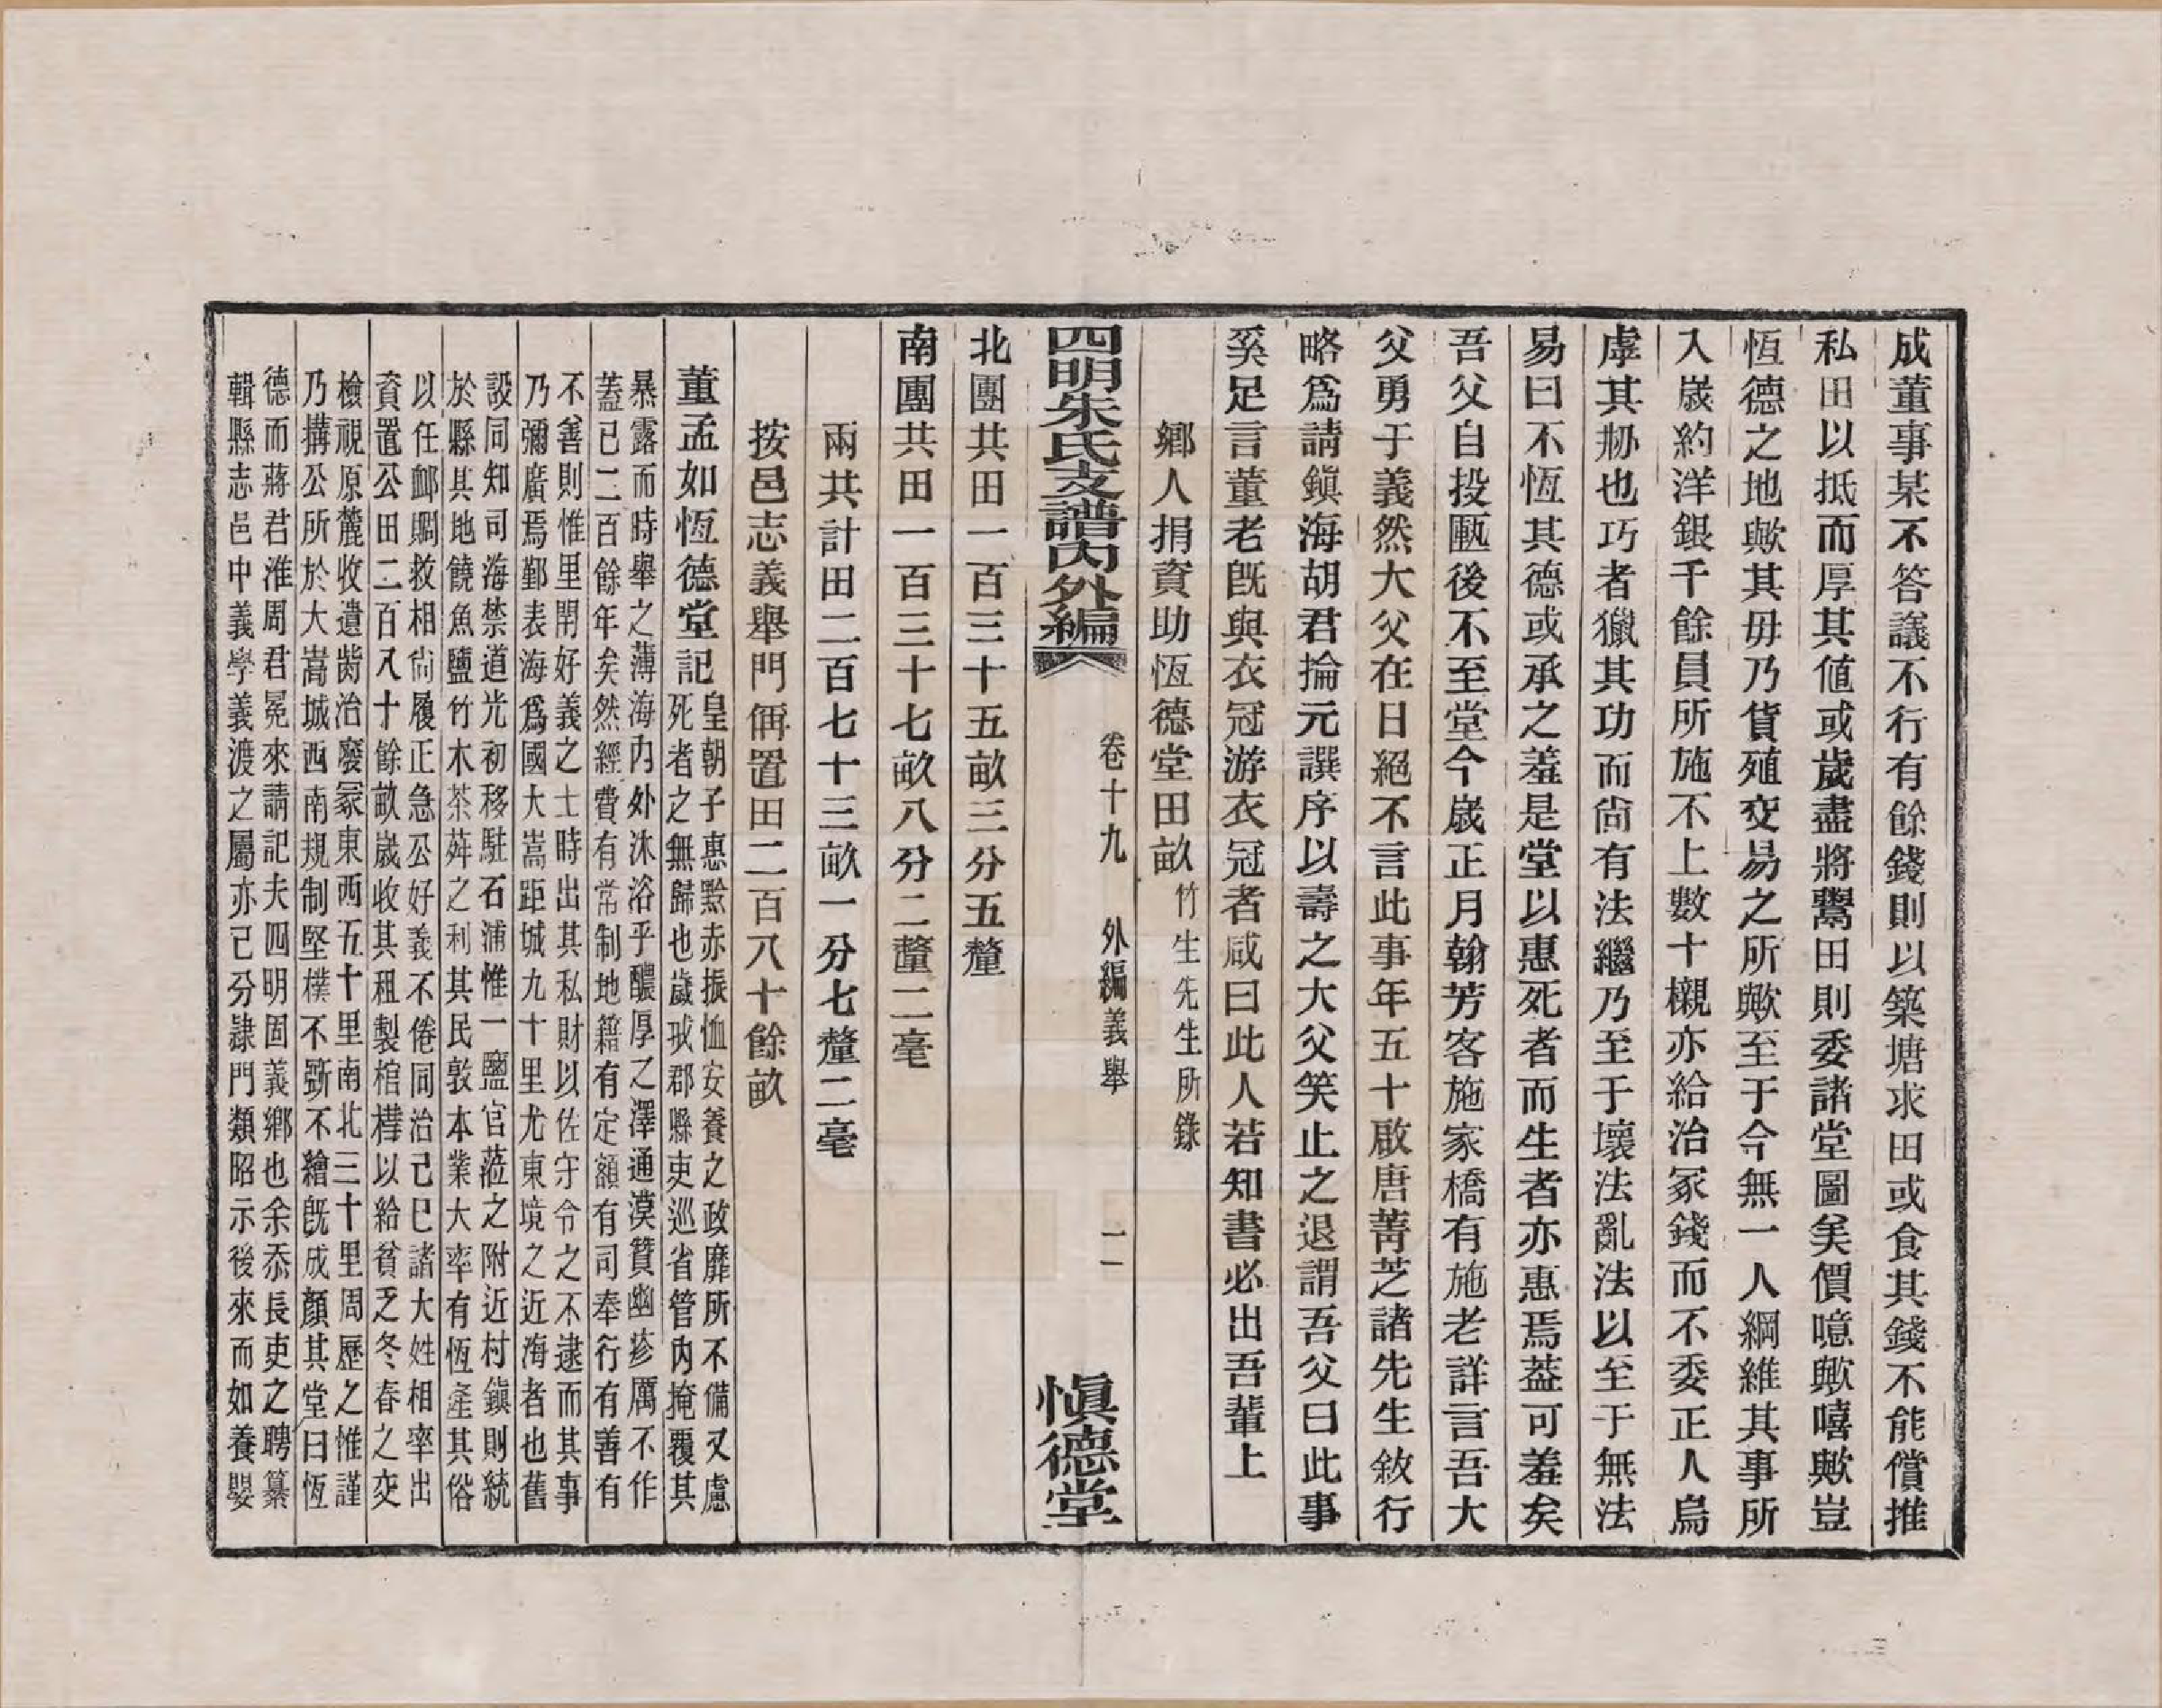 成董事某不答議不行有餘錢則以築塘求田或食其錢不能償推
私田以抵而厚其値或歲盡將鬻田則委諸堂圖矣價噫歟嘻歟豈
恆德之地歟其毋乃貨殖交易之所歟至于今無一人綱維其事所
入歲約洋銀千餘員所施不上數十櫬亦給治冢錢而不委正人烏
虖其刱也巧者獵其功而尙有法繼乃至于壞法亂法以至于無法
易曰不恆其德或承之羞是堂以惠死者而生者亦惠焉葢可羞矣
吾父自投匭後不至堂今歲正月翰芳客施家橋有施老詳言吾大
父勇于義然大父在日絕不言此事年五十啟唐菁芝諸先生敘行
略爲請鎭海胡君掄元譔序以壽之大父笑止之退謂吾父曰此事
奚足言董老旣與衣冠游衣冠者咸曰此人若知書必出吾輩上
鄉人捐資助恆德堂田畝竹生先生所錄
四明朱氏支譜內外編 卷十九 外編義舉 一一 愼德堂
北團共田一百三十五畝三分五釐
南團共田一百三十七畝八分二釐二毫
兩共計田二百七十三畝一分七釐二毫
按邑志義舉門偁置田二百八十餘畝
董孟如恆德堂記
皇朝子惠黔赤振恤安養之政靡所不備又慮
死者之無歸也歲戒郡縣吏巡省管內掩覆其
暴露而時舉之薄海內外沐浴乎醲厚之澤通漠贊幽疹厲不作
蓋已二百餘年矣然經費有常制地籍有定額有司奉行有善有
不善則惟里閈好義之士時出其私財以佐守令之不逮而其事
乃彌廣焉鄞表海爲國大嵩距城九十里尤東境之近海者也舊
設同知司海禁道光初移駐石浦惟一鹽官蒞之附近村鎭則統
於縣其地饒魚鹽竹木茶荈之利其民敦本業大率有恆產其俗
以任卹賙救相尙履正急公好義不倦同治己巳諸大姓相率出
資置公田二百八十餘畝歲收其租製棺槥以給貧乏冬春之交
檢視原麓收遺齒治廢冢東西五十里南北三十里周歷之惟謹
乃搆公所於大嵩城西南規制堅樸不斲不繪旣成顏其堂曰恆
德而蔣君淮周君冕來請記夫四明固義鄉也余忝長吏之聘纂
輯縣志邑中義學義渡之屬亦已分隷門類昭示後來而如養嬰